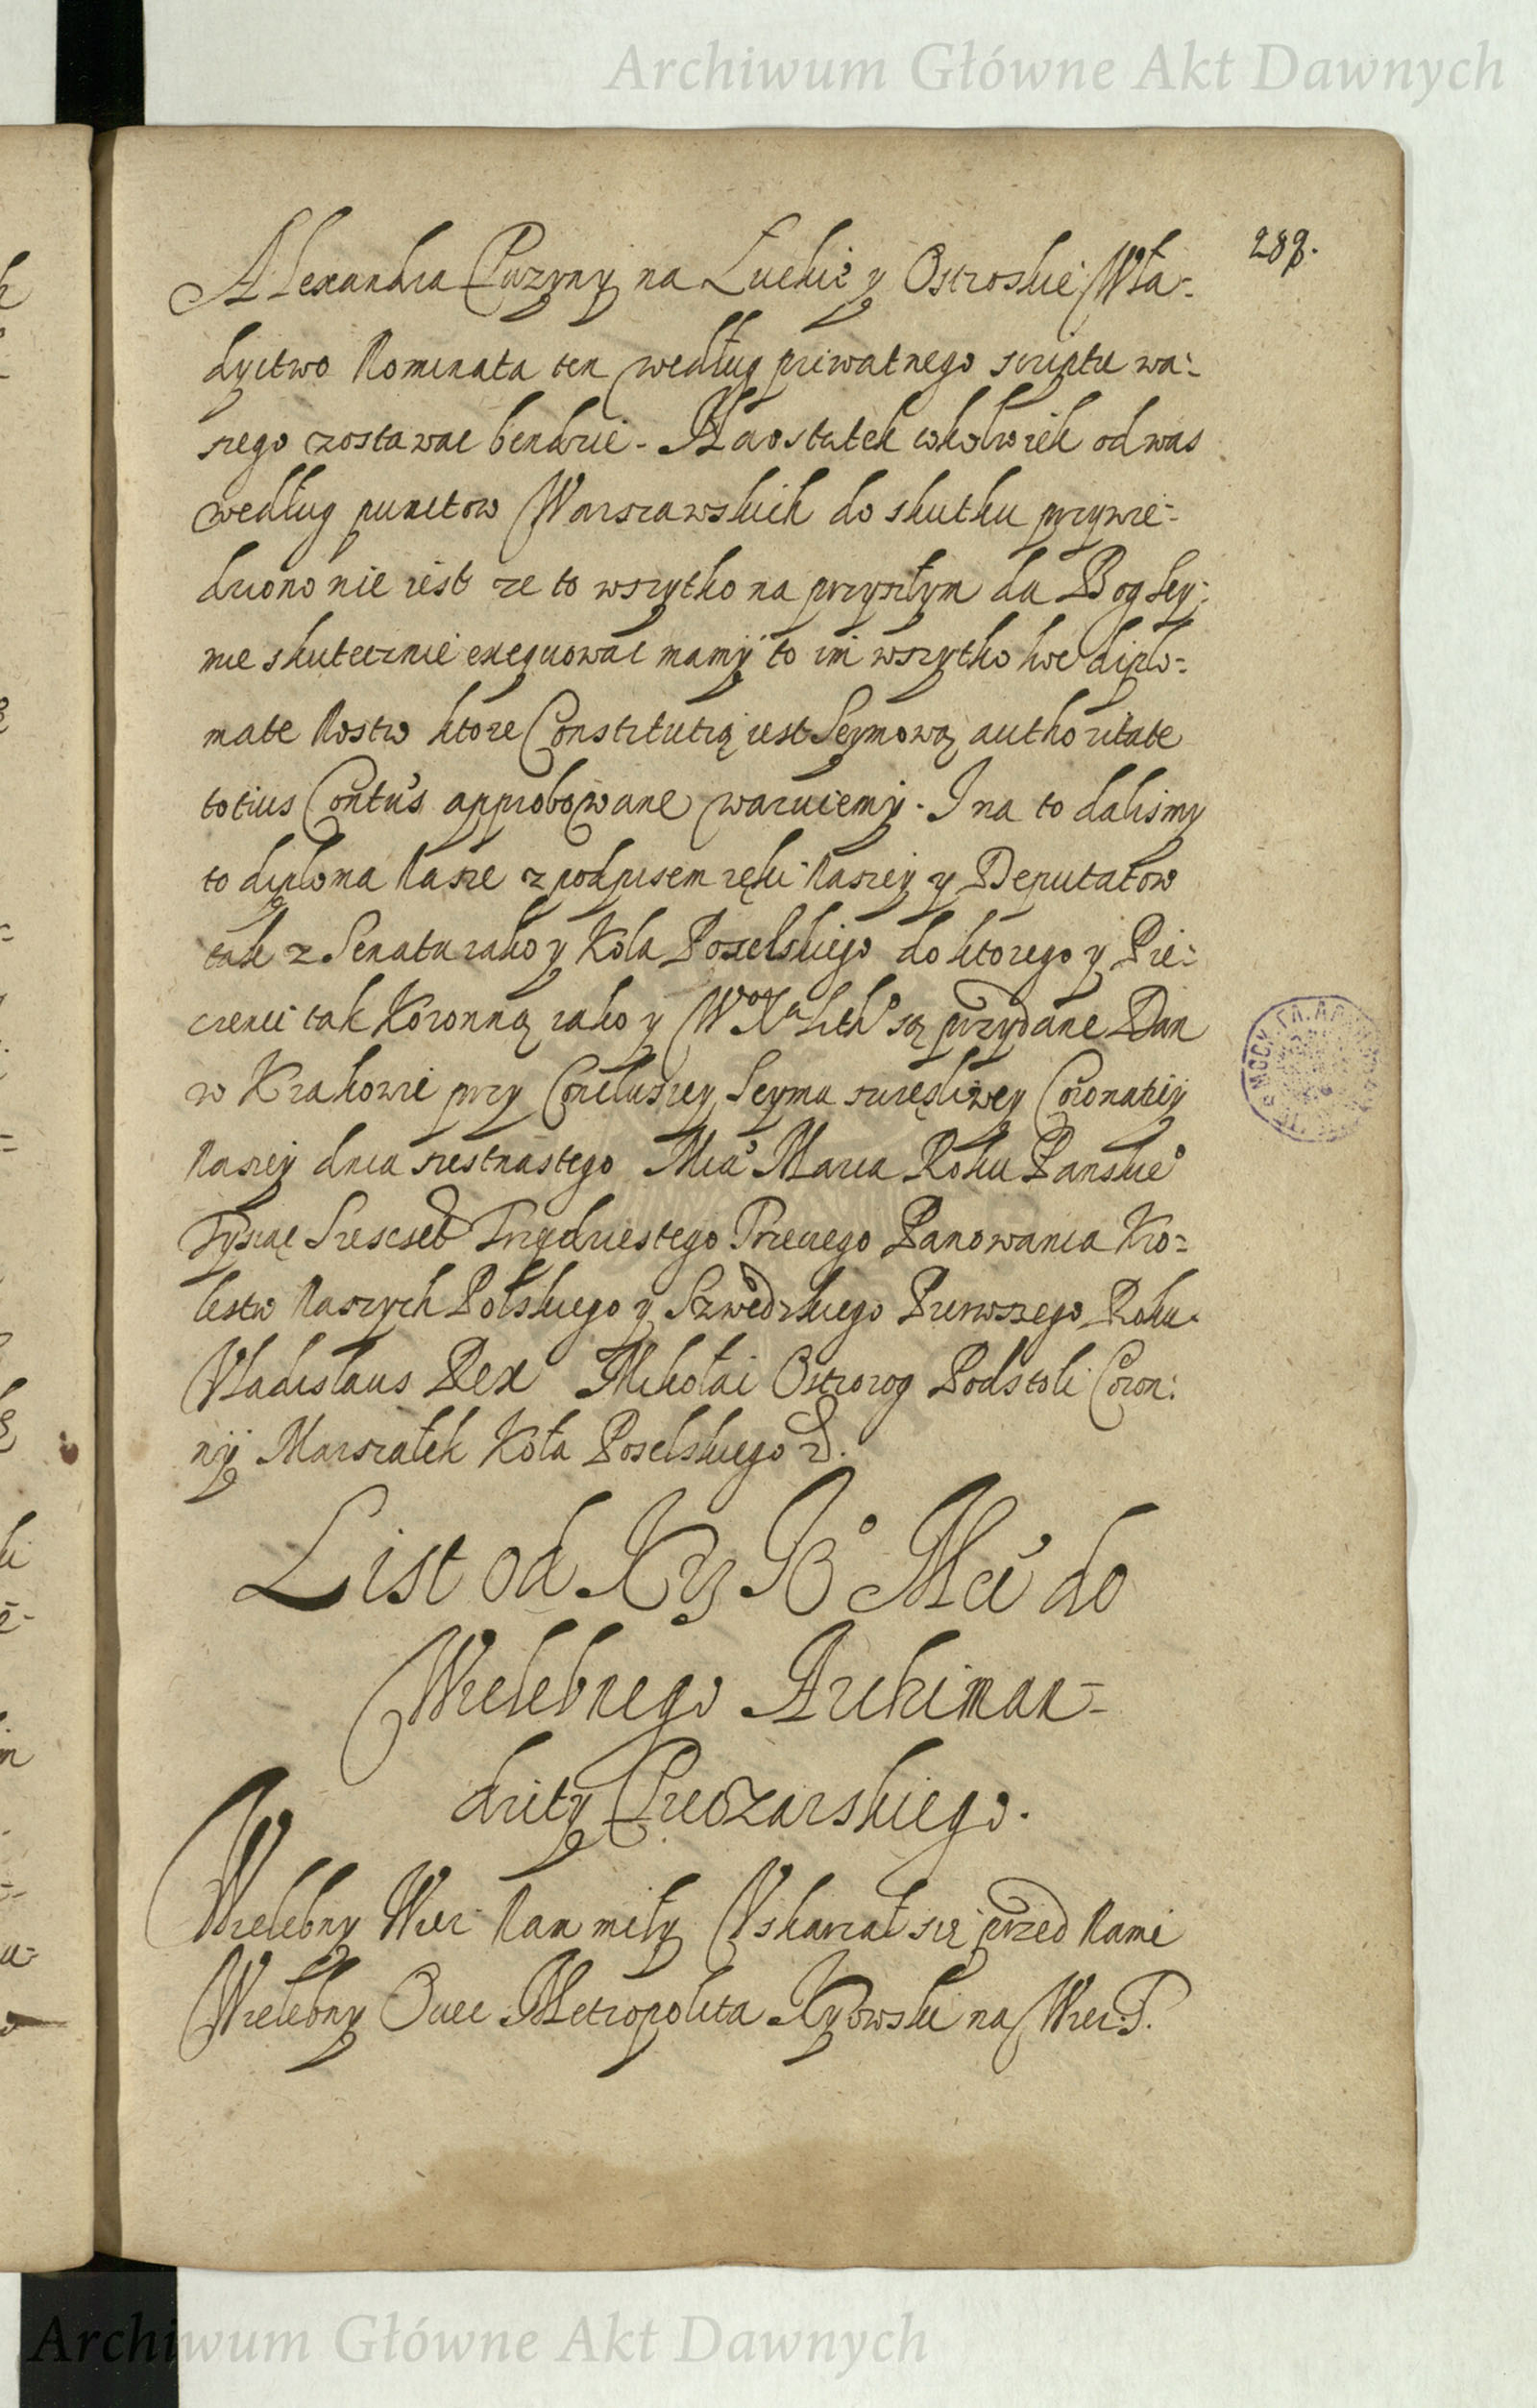 Archiwum Główne Akt Dawnych
289.
Alexandra Puzyny na Łuckie y Ostroskie Wła-
dyctwo Nominata ten według priwatnego scriptu wa-
szego zostawac bendzie. Naostatek cokolwiek od was
według punctow Warszawskich do skutku przywie-
dziono nie iest ze to wszytko na przyszłym da Bog Sey-
mie skutecznie exequowac mamÿ to im wszytko tw diplo-
mate Nostro ktore Constitutią iest Seymową authoritate
totius Contus approbowane waruiemÿ. I na to dalismy
to diploma Nasze z podpisem ręki Naszey y Deputatow
tak z Senatu iako y Koła Poselskiego do ktorego y Pie-
czenci tak Koronną iako y Wo Xa Lith° są przydane Dan
w Krakowie przy Conclusiey Seymu szczęsliwey Coronatiÿ
Naszey dnia szestnastego Mca Marca Roku Panskie°
Tysiąc Szescset Trzydziestego Trzeciego Panowania Kro-
lestw Naszych Polskiego y Szwedzkiego Pierwszego Roku.
Vladislaus Rex Mikołai Ostrorog Podstoli Coron:
nÿ Marszałek Koła Poselskiego
List od Krz K° Mci do
Wielebnego Archiman-
drity Pieczarskiego.
Wielebny Wier. Nam miły Vskarżał się przed Nami
Wielebny Ociec Metropolita Kyowski na Wier. T.
Archiwum Główne Akt Dawnych